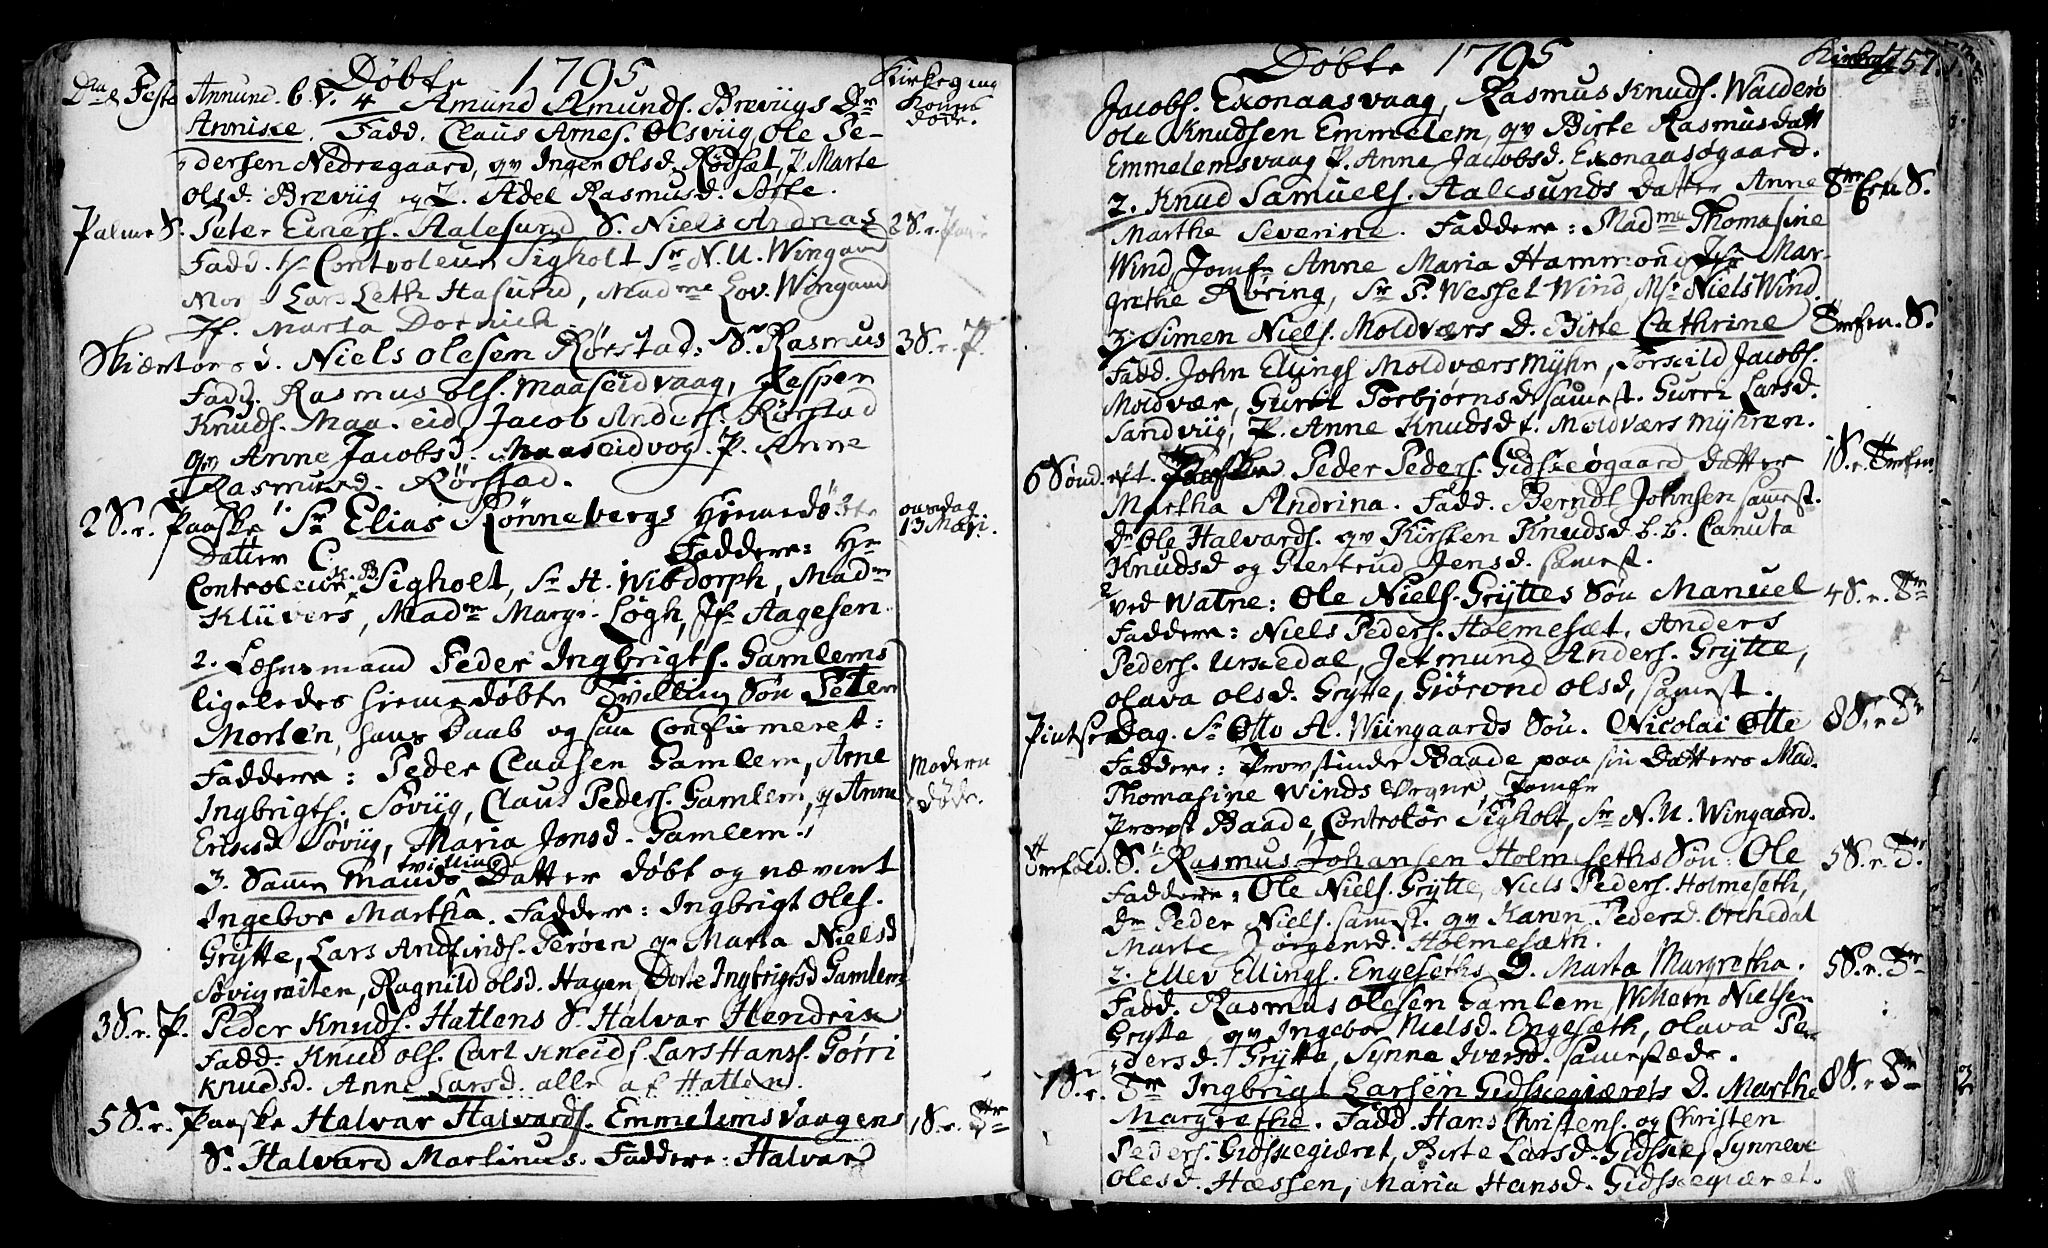 Døbte 1795
Kirkegang
Konen
døde.
Annunc. b. V. 4 Amund Amunds. Brevigs Dr
Anniske. Fadd. Claus Arnes. Olsviig, Ole Pe-
dersen Nedregaard, qv Inger Olsd. Rødsæt, P. Marte
olsd. Breviig og Z. Adel Rasmusd. Satte.
Palme S. Peter Einers. Aalesund S. Niels Andreas
Fadd. Hr Controleur Sigholt Sr N. U. Wingaard
Lars Leth Hasund, Madme Lov. Wingaard
Jf. Marta Dorthea
Skiærtorsd. Niels Olesen Rørstad: S. Rasmus 3 S. e. P.
Fadd. Rasmus Ols. Maaseidvaag, Jesper
Knuds. Maaseid Jacob Anders. Rørstad
qv Anne Jacobsd. Maaseidvog. P. Anne
Rasmusd. Rørstad.
2 S. e. Paaske 1. Sr Elias Rønnebergs Hiemedøbte onsdag
Datter C. Faddere: Hr 13 Maji.
Controleur Sigholt, Sr H. Wibdorph, Madme
Klüvers, Madme Margr. Løgh, Jf. Aagesen.
2. Lehnsmand Peder Ingbrigts. Gamlems
ligeledes hiemedøbte Tvilling Søn Peter
Morten, hans Daab ogsaa Confirmeret:
Faddere: Peder Clausen Gamlem, Arne
Ingbrigts. Søviig, Claus Peders. Gamlem, q Anne
Ericsd Søviig, Maria Jonsd. Gamlem.
Moderen
døde.
3. Samme Mands tvilling Datter døbt og nævnt
Ingebor Martha. Faddere: Ingbrigt Oles.
Grytte, Lars Andfinds. Terøen qv Marta Nielsd
Søvigræiten, Ragnild olsd. Hagen, Dorte Ingbrigtsd Gamlem
3 S. e. P. Peder Knuds. Hatlens S. Halvar Hendrik
Fadd: Knud ols. Carl Kneids. Lars Hanss. Gørri
Knudsd. Anne Larsd. alle af Hatlen.
5 S. e. Paaske Halvar Halvards. Emmelemsvaagens 1 S. e. Tr
S. Halvard Martinus. Faddere: Halvar
Døbte 1795 Kirkeg 157.
Jacobs. Exonaasvaag, Rasmus Knuds. Walderø
Ole Knudsen Emmelem, qv Birte Rasmusdatt
Emmelemsvaag P. Anne Jacobsd. Exonaasøgaard.
2. Knud Samuels. Aalesunds Datter Anne
Marthe Severine. Faddere: Madme Thomasine
Wind, Jomfr Anne Maria Hammond, Jfr Mar-
grethe Røring, Sr P. Wessel Wind, Mr Niels Wind.
3. Simen Niels. Moldværs D. Birte Cathrine
Fadd. John Ellings Moldværsmyhr, Torkild Jacobs.
Moldvær, Guroe Torbjørnsd samest. Gurri Larsd.
Sandviig, P. Anne Knudsdt. Moldværsmyhren.
6 Sønd. eft. Paaske. Peder Peders. Gidskeøgaard Datter 1 S. e. Trefen.
Martha Andrina. Fadd. Berndt Johnsen samest.
Dr Ole Halvards. qv Kirsten Knudsd b.b. Canuta
Knudsd og Giertrud Jensd. samest.
ved Watne: Ole Niels. Gryttes Søn Manuel 4 S. e. Tr
Faddere: Niels Peders. Holmesæt, Anders
Peders. Urkedal, Jetmund Anders. Grytte,
olava olsd. Grytte, Giørond olsd, samest.
Pintse Dag. Sr Otto A. Wiingaards Søn. Nicolai Otte 8 S. e Tr
Faddere: Provstinde Baade paa sin Datters Mad.
Thomasine Winds Vegne, Jomfr
Provst Baade, Controlør Sigholt, Sr N. U. Wingaard.
Trefold. S. 1 Rasmus Johansen Holmseths Søn: Ole 5 S. e. Tr
Faddere: Ole Niels. Grytte, Niels Peders. Holmeseth,
Dr Peder Niels. samest. qv Karen Pedersd. Orchedal
Marte Jørgensd. Holmesæth.
2. Ellev Ellings. Engeseths D. Marta Margretha. 5 S. e. Tr
Fadd. Rasmus Olesen Gamlem, Wilhem Nielsen
Grytte qv Ingebor Nielsd. Engesæth, olava Pe-
dersd. Grytte, Synne Iversd. samestæde.
1 S. e. Tr Ingbrigt Larsen Gidskegiærets D. Marthe 8 S. e Tr
Margrethe. Fadd. Hans Christens. og Christen
Peders. Gidskegiæret, Birte Larsd. Gidske, Synneve
Olesd. Hæssen, Maria Hansd. Gidskegiæret.